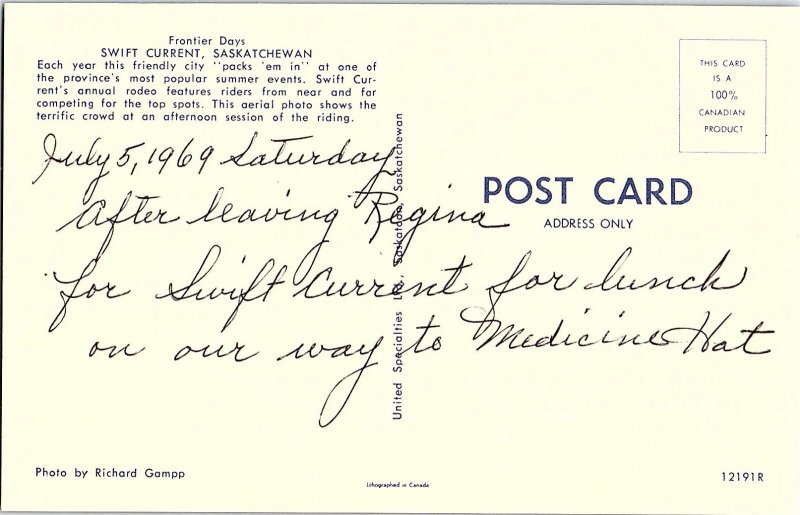 Frontier Days
SWIFT CURRENT, SASKATCHEWAN
Each year this friendly city "packs 'em in" at one of
the province's most popular summer events. Swift Cur-
rent's annual rodeo features riders from near and far
competing for the top spots. This aerial photo shows the
terrific crowd at an afternoon session of the riding.
THIS CARD
IS A
100%
CANADIAN
PRODUCT
POST CARD
ADDRESS ONLY
July 5, 1969 Saturday
After leaving Regina
for Swift Current for lunch
on our way to Medicine Hat
United Specialties Ltd., Saskatoon, Saskatchewan
Photo by Richard Gampp
Lithographed in Canada
12191R